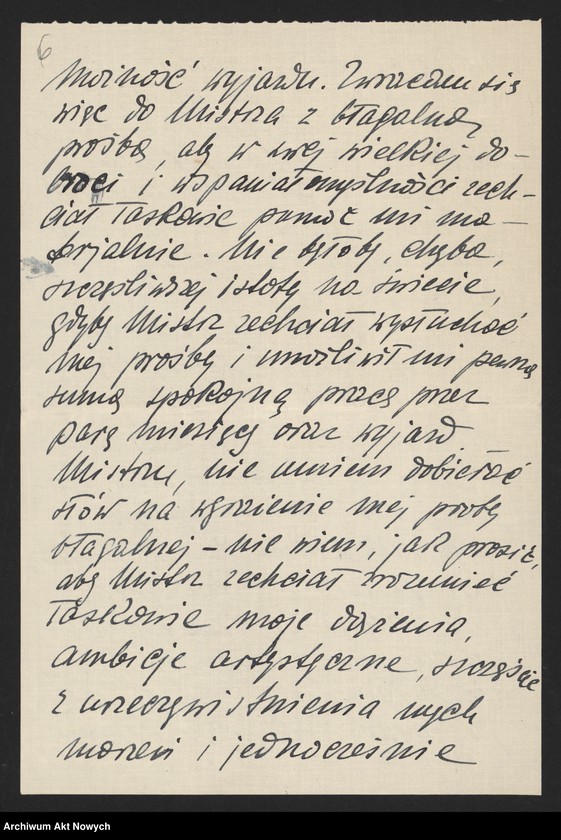 6
możność wyjazdu. Zwracam się
więc do Mistrza z błagalną
prośbą, aby w swej wielkiej do-
broci i wspaniałomyślności zech-
ciał łaskawie pomóc mi ma-
terjalnie. Nie byłoby, chyba,
szczęśliwszej istoty na świecie,
gdyby Mistrz zechciał wysłuchać
mej prośby i umożliwił mi pewną
sumą spokojną pracę przez
parę miesięcy oraz wyjazd
Mistrzu, nie umiem dobierać
słów na wyrażenie mej prośby
błagalnej – nie wiem, jak prosić,
aby Mistrz zechciał zrozumieć
łaskawie moje dążenia,
ambicje artystyczne, szczęście
z urzeczywistnienia mych
marzeń i jednocześnie
Archiwum Akt Nowych